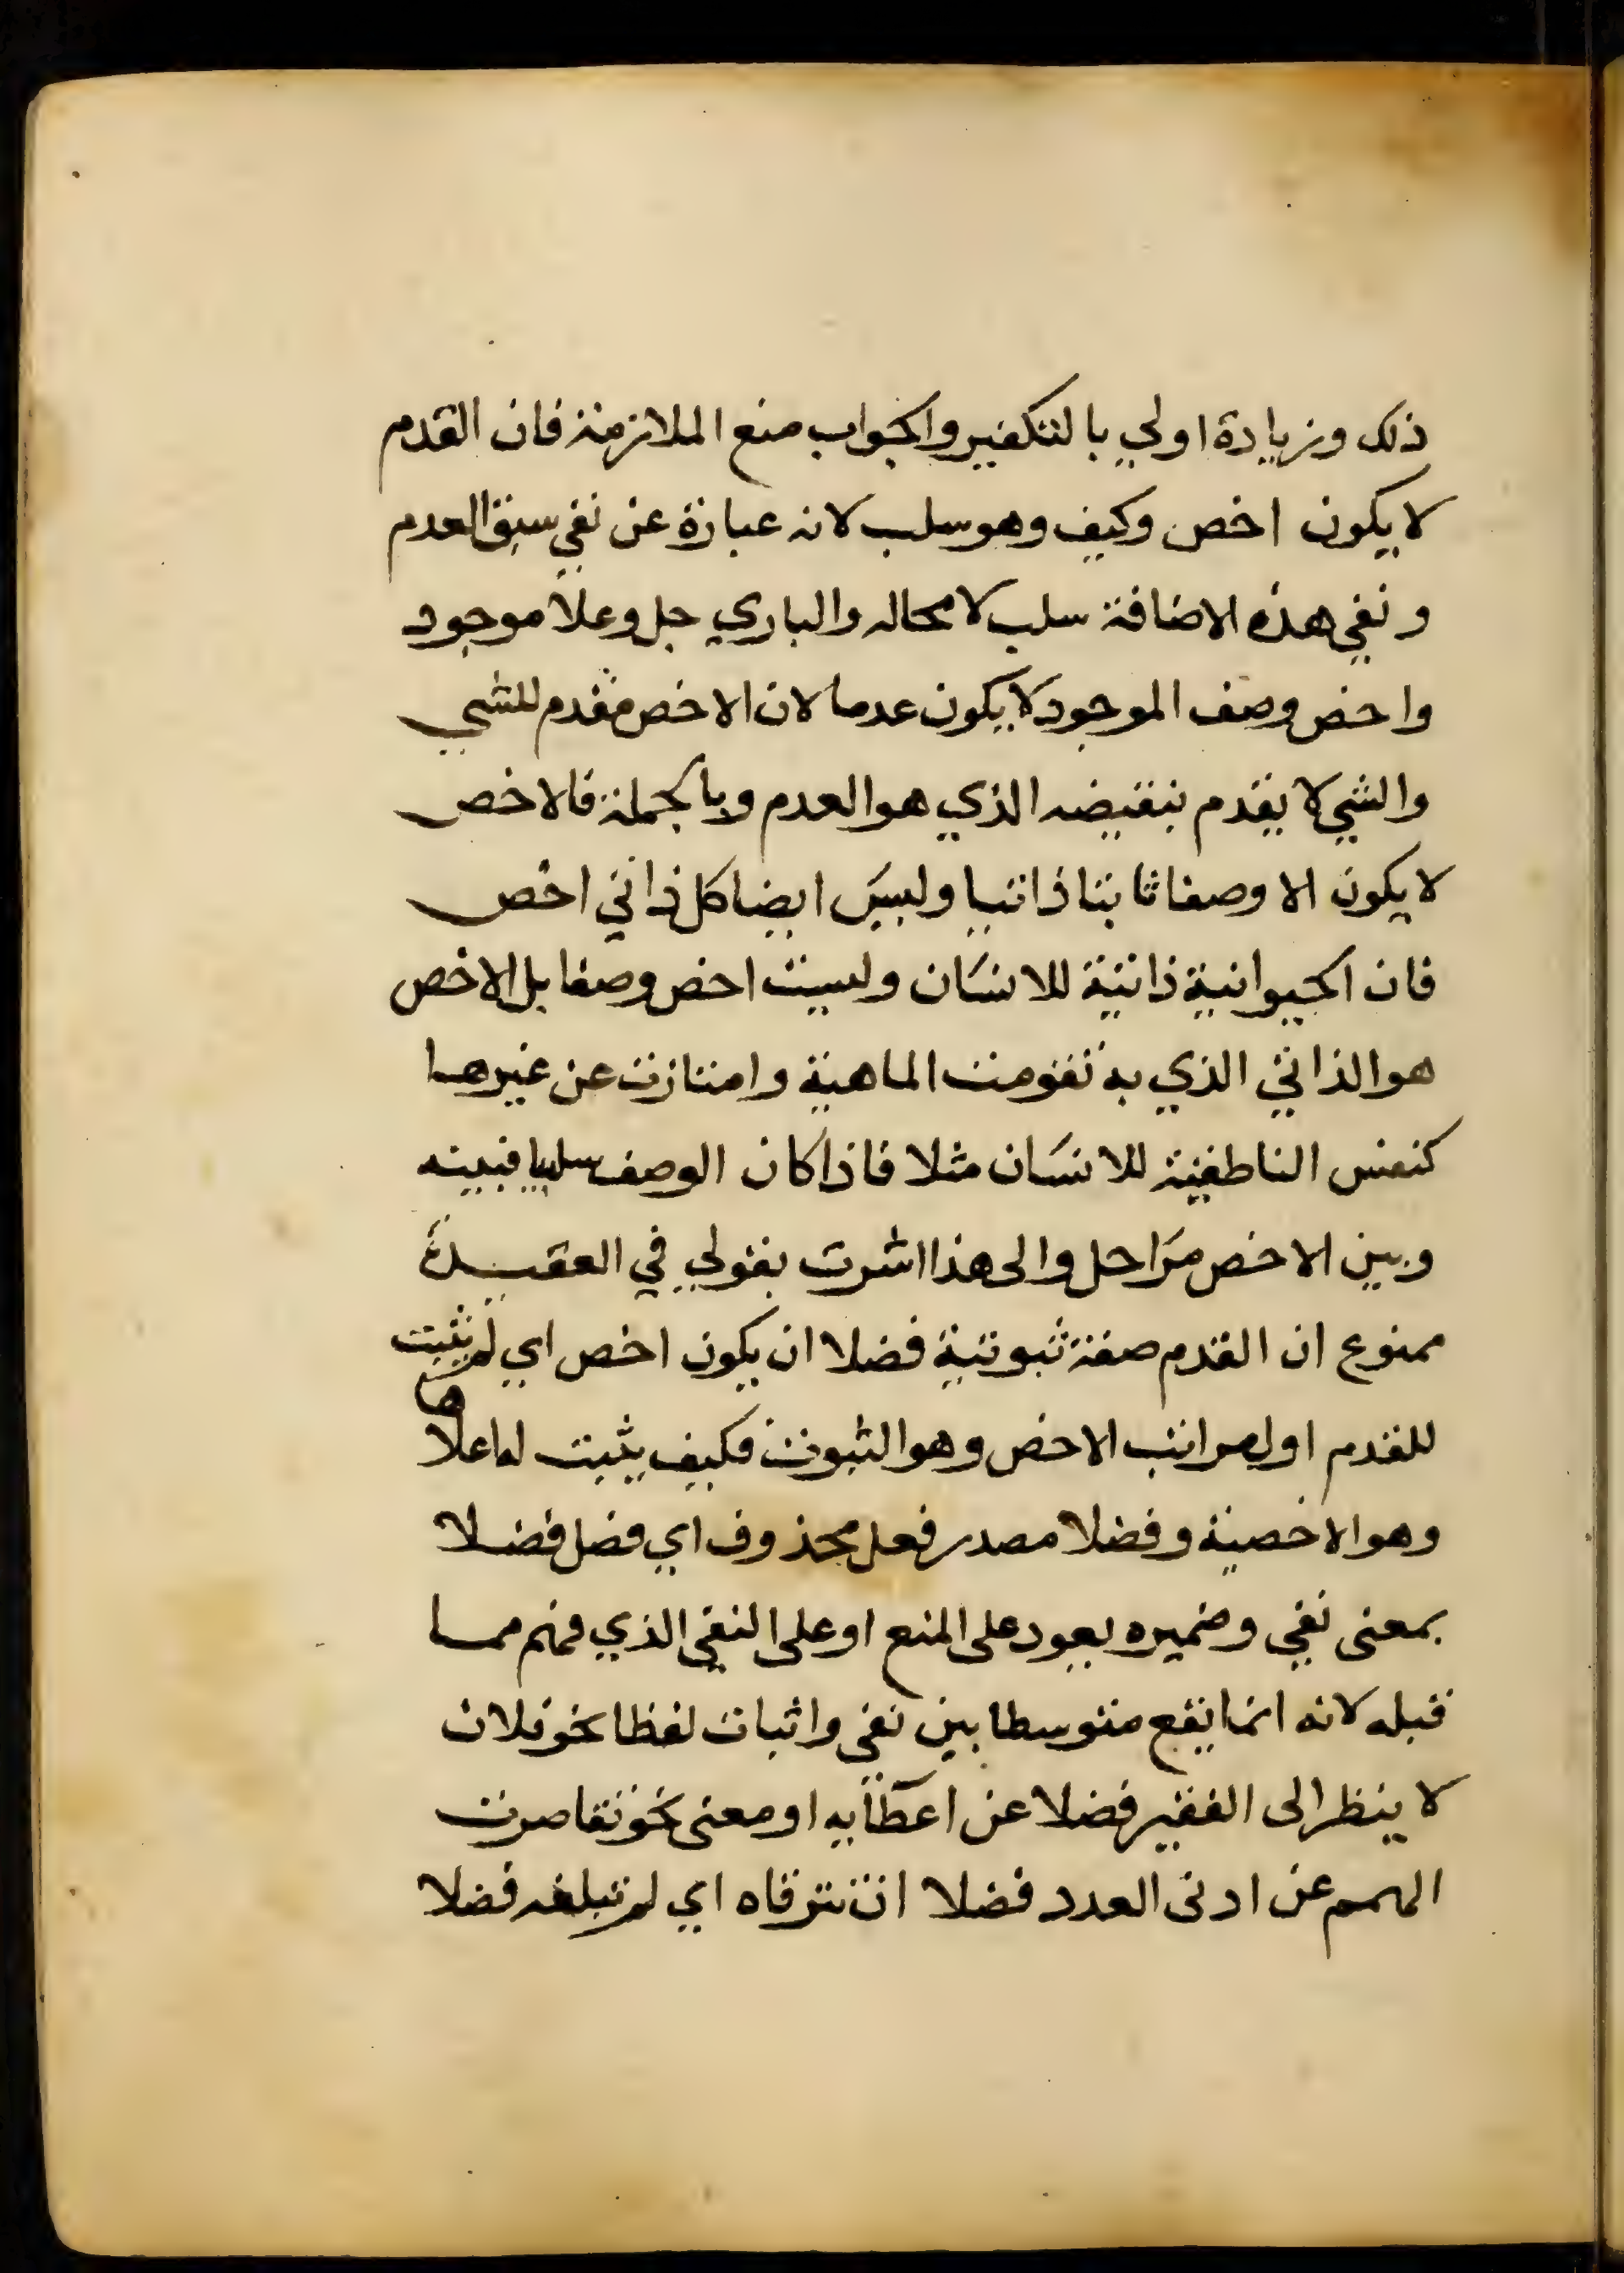 ذلك وزيادة اولي بالتكفير والجواب منع الملازمة فان القدم
لا يكون اخص وكيف وهو سلب لانه عبارة عن نفي سبق العدم
ونفي هذه الاضافة سلب لا محاله والباري جل وعلا موجود
واخص وصف الموجود لا يكون عدما لان الاخص مقدم للشي
والشي لا يقدم بنقيضه الذي هو العدم وبالجملة فالاخص
لا يكون الا وصفا ثابتا ذاتيا وليس ايضا كل ذاتي اخص
فان الحيوانية ذاتية للانسان وليست اخص وصفا بل الاخص
هو الذاتي الذي به تقومت الماهية وامتازت عن غيرها
كنفس الناطقية للانسان مثلا فاذا كان الوصف سلبيا فبينه
وبين الاخص مراحل والى هذا اشرت بقولي في العقيدة
ممنوع ان القدم صفة ثبوتية فضلا ان يكون اخص اي لم يثبت
للقدم اول مراتب الاخص وهو الثبوت فكيف يثبت له اعلاها
وهو الاخصية وفضلا مصدر فعل محذوف اي فضل فضلا
بمعنى نفي وضميره يعود على المنع او على النفي الذي فهم مما
قبله لانه انما يقع متوسطا بين نفي واثبات لفظا نحو فلان
لا ينظر الى الفقير فضلا عن اعطآيه او معنى نحو تقاصرت
الهمم عن ادنى العدد فضلا ان تترقاه اي لم تبلغه فضلا